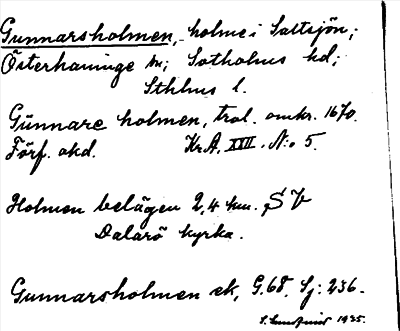 Gunnarsholmen, holme i Saltsjön;
Österhaninge sn; Sotholms hd;
Sthlms l.
Gůnnare holmen, trol. omkr. 1670.
Förf. okd. Kr.A. XXII. N:o 5.
Holmen belägen 2,4 km. SV
Dalarö kyrka.
Gunnarsholmen ek, G.68. Sj: 256.
1935.